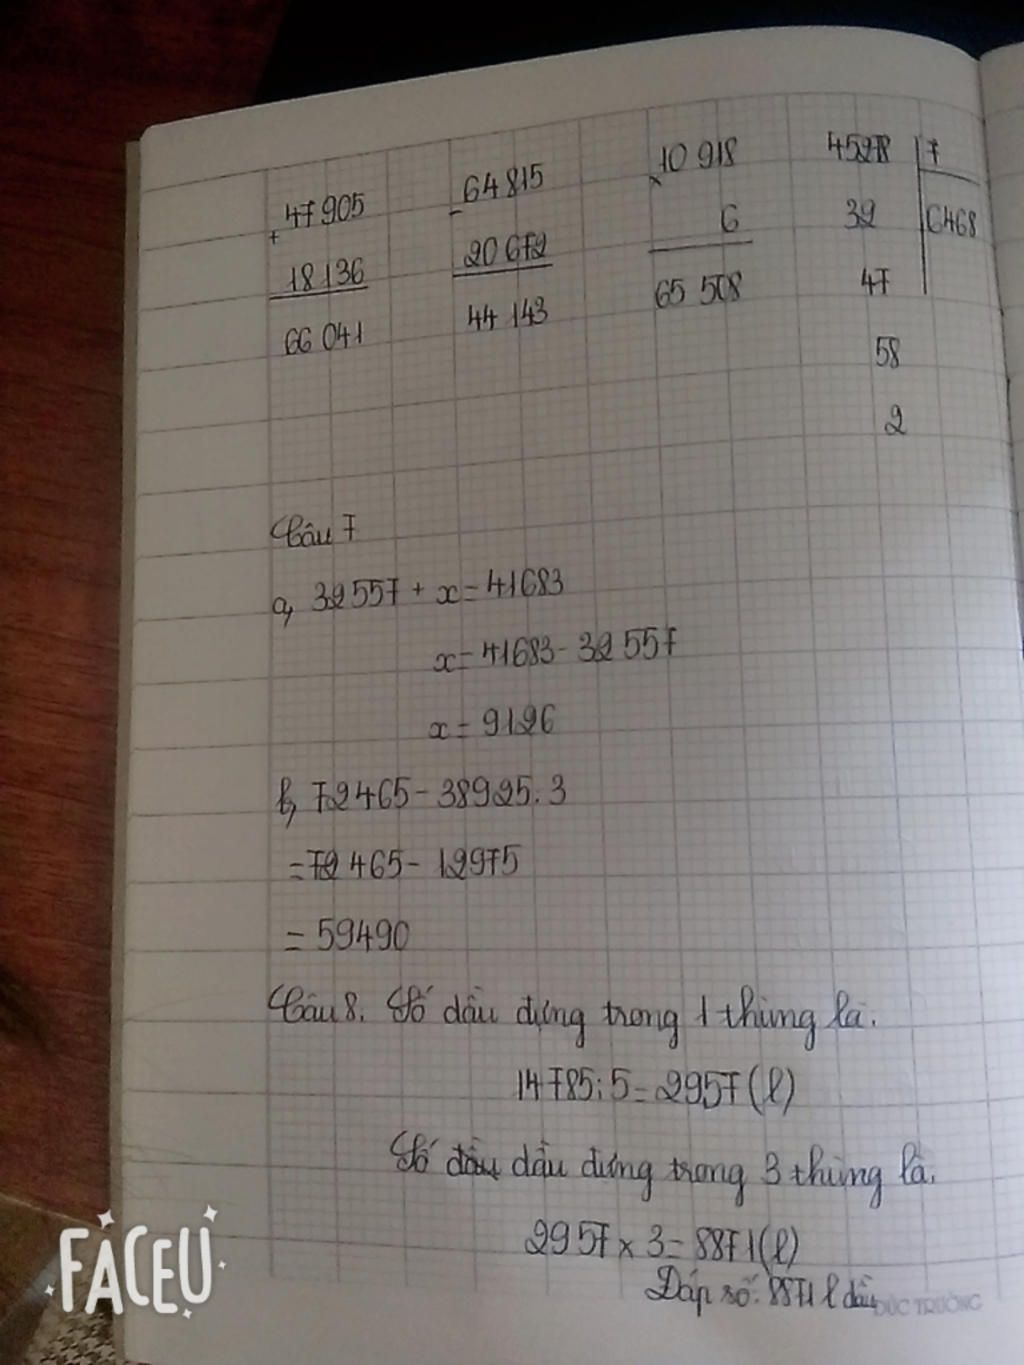 47 905
+
18 136
66 041
64 815
-
20 672
44 143
10 918
×
6
65 508
45278 7
32 6468
47
58
2
Câu 7
a, 32557 + x = 41683
x = 41683 - 32557
x = 9126
b, 72465 - 38925:3
= 72465 - 12975
= 59490
Câu 8. Số dầu đựng trong 1 thùng là.
14785:5 = 2957 (l)
Số dầu đựng trong 3 thùng là.
2957 x 3 = 8871 (l)
Đáp số: 8871 l dầu
ĐỨC TRƯỜNG
FACEU